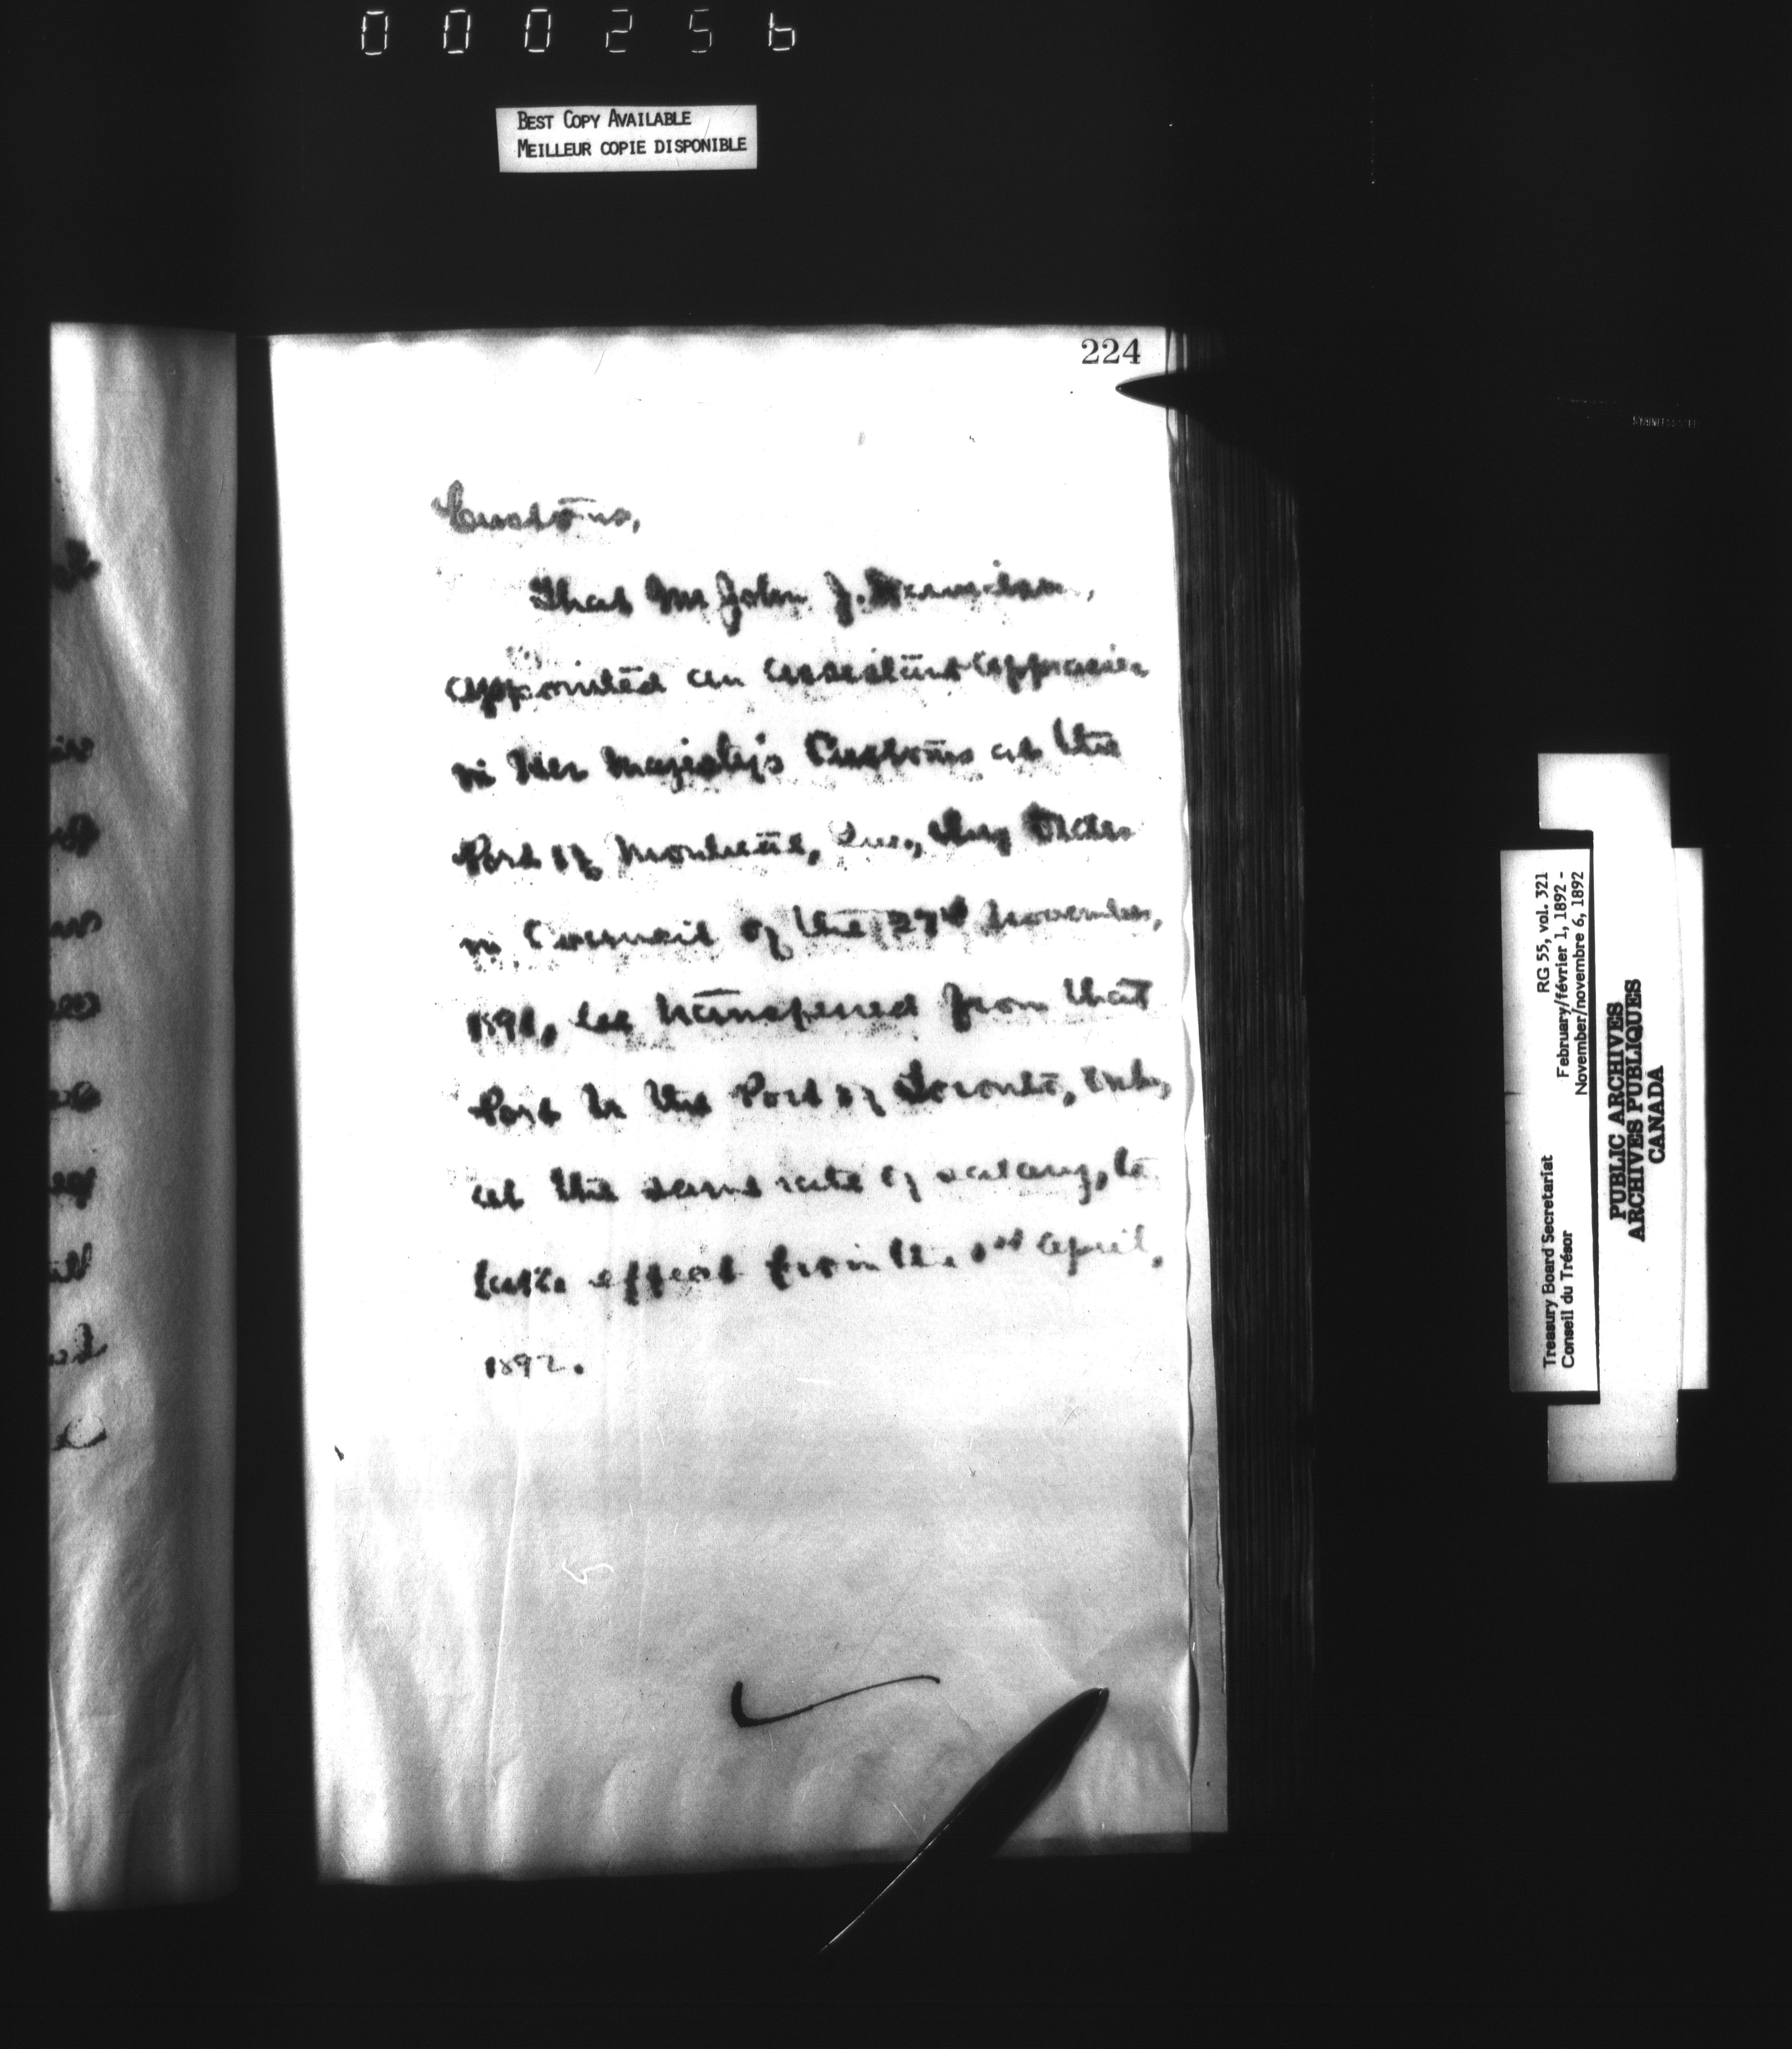 000256
BEST COPY AVAILABLE
MEILLEUR COPIE DISPONIBLE
224
Customs,
That Mr John J.
appointed an assistant appraiser
in Her Majesty's Customs at the
Port of Montreal, Que., by Order
in Council of the November,
1891, be transferred from that
Port to the Port of Toronto, Ont.,
at the same rate of salary, to
take effect from the 1st April,
1892.
Treasury Board Secretariat RG 55, vol. 321
Conseil du Trésor February/février 1, 1892 -
November/novembre 6, 1892
PUBLIC ARCHIVES
ARCHIVES PUBLIQUES
CANADA